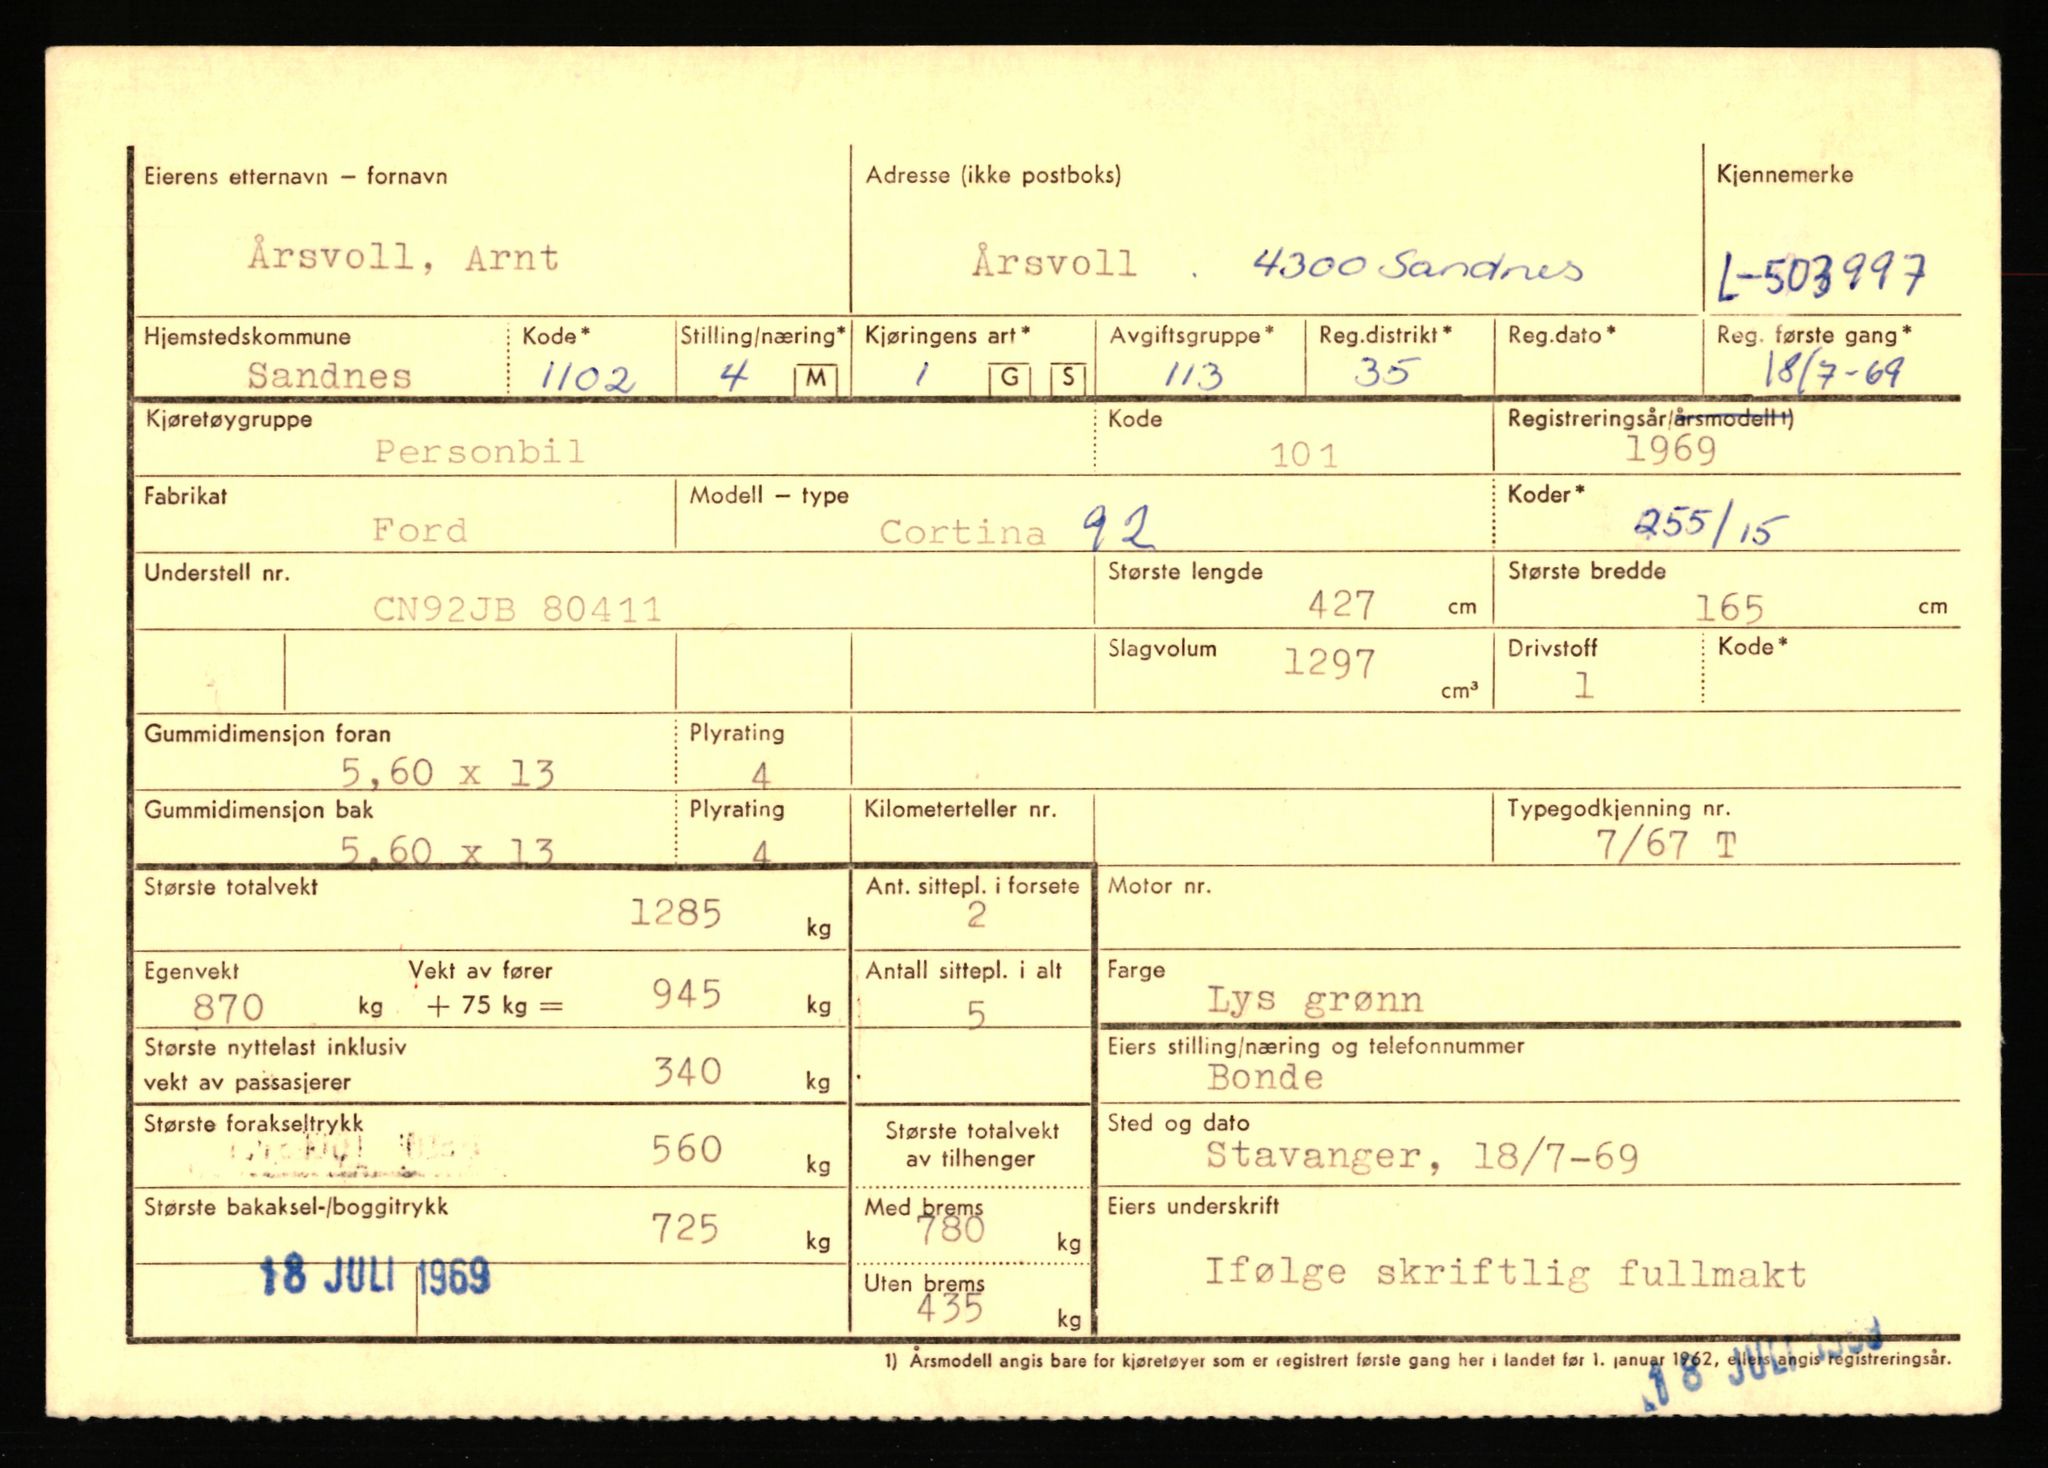 Eierens etternavn – fornavn
Årsvoll, Arnt
Adresse (ikke postboks)
Årsvoll . 4300 Sandnes
Kjennemerke
L-503997
Hjemstedskommune
Sandnes
Kode*
1102
Stilling/næring*
4 M
Kjøringens art*
1 G S
Avgiftsgruppe*
113
Reg.distrikt*
35
Reg.dato*
Reg. første gang*
18/7-69
Kjøretøygruppe
Personbil
Kode
101
Registreringsår/årsmodell 1)
1969
Fabrikat
Ford
Modell – type
Cortina 92
Koder*
255/15
Understell nr.
CN92JB 80411
Største lengde
427 cm
Største bredde
165 cm
Slagvolum
1297 cm³
Drivstoff
1
Kode*
Gummidimensjon foran
5,60 x 13
Plyrating
4
Gummidimensjon bak
5,60 x 13
Plyrating
4
Kilometerteller nr.
Typegodkjenning nr.
7/67 T
Største totalvekt
1285 kg
Ant. sittepl. i forsete
2
Motor nr.
Egenvekt
870 kg
Vekt av fører
+ 75 kg =
945 kg
Antall sittepl. i alt
5
Farge
Lys grønn
Største nyttelast inklusiv
vekt av passasjerer
340 kg
Eiers stilling/næring og telefonnummer
Bonde
Største forakseltrykk
560 kg
Største totalvekt
av tilhenger
Sted og dato
Stavanger, 18/7-69
Største bakaksel-/boggitrykk
725 kg
Med brems
780 kg
Eiers underskrift
Ifølge skriftlig fullmakt
18 JULI 1969
Uten brems
435 kg
1) Årsmodell angis bare for kjøretøyer som er registrert første gang her i landet før 1. januar 1962, ellers angis registreringsår.
18 JULI 1969